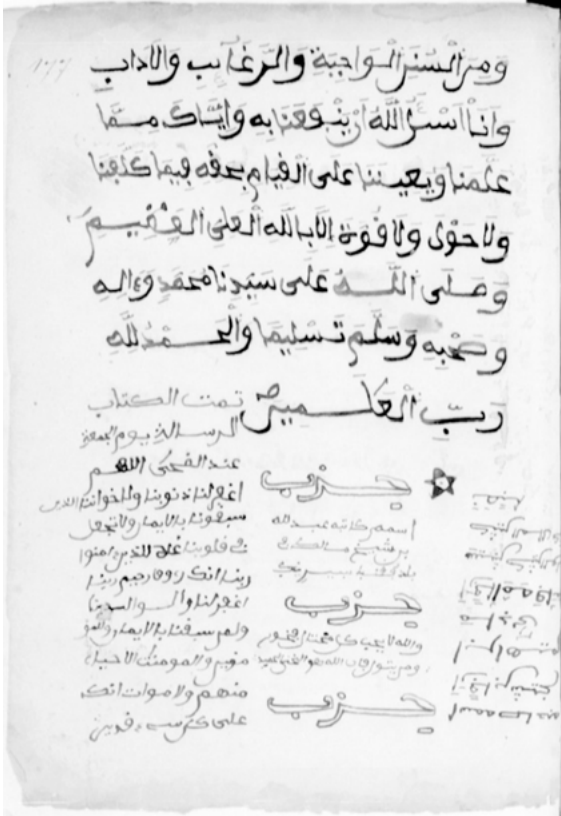 ومن السنن الواجبة والرغايب والاداب
وانا اسئل الله ان ينفعنا به واياك مما
علمنا ويعيننا على القيام بحقه فيما كلفنا
ولا حول ولا قوة الا بالله العلي العظيم
وصلى الله على سيدنا محمد وءاله
وصحبه وسلم تسليما والحمد لله
رب العلمين
تمت الكتاب
الرسالة يوم الجمعة
عند الضحى اللهم
اغفر لنا ذنوبنا ولاخواننا الذين
سبقونا بالايمان ولا تجعل
في قلوبنا غلا للذين ءامنوا
ربنا انك رءوف رحيم ربنا
اغفر لنا
ولمن سبقنا بالايمان
والمومنت الاحياء
منهم ولاموات انك
على كل شيء قدير
حزب
اسمه كاتبه عبد الله
بن شيخ مالك
حزب
والله لا يحب كل مختال فخور
ومن يتول فان الله هو الغني الحميد
حزب